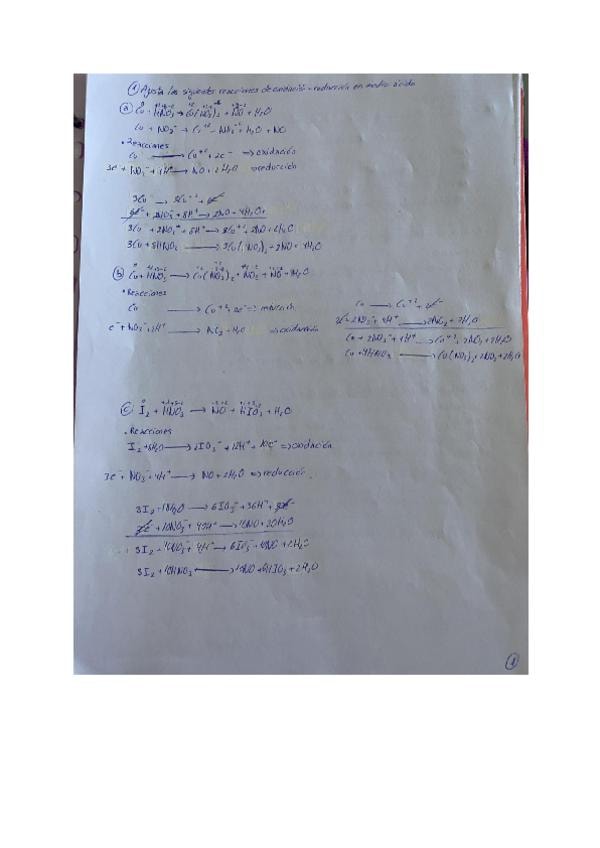 ① Ajusta las siguientes reacciones de oxidación-reducción en medio ácido
ⓐ Cu + HNO3 → Cu(NO3)2 + NO + H2O
Cu + NO3- → Cu+2 + NO3- + H2O + NO
• Reacciones
Cu → Cu+2 + 2e- ⇒ oxidación
3e- + NO3- + 4H+ → NO + 2H2O ⇒ reducción
3Cu → 3Cu+2 + 6e-
6e- + 2NO3- + 8H+ → 2NO + 4H2O
3Cu + 2NO3- + 8H+ → 3Cu+2 + 2NO + 4H2O
3Cu + 8HNO3 → 3Cu(NO3)2 + 2NO + 4H2O
ⓑ Cu + HNO3 → Cu(NO3)2 + NO2 + H2O
• Reacciones
Cu → Cu+2 + 2e- ⇒
e- + NO3- + 2H+ → NO2 + H2O ⇒ oxidación
Cu → Cu+2 + 2e-
2e- + 2NO3- + 4H+ → 2NO2 + 2H2O
Cu + 2NO3- + 4H+ → Cu+2 + 2NO2 + 2H2O
Cu + 4HNO3 → Cu(NO3)2 + 2NO2 + 2H2O
ⓒ I2 + HNO3 → NO + HIO3 + H2O
• Reacciones
I2 + 6H2O → 2IO3- + 12H+ + 10e- ⇒ oxidación
3e- + NO3- + 4H+ → NO + 2H2O ⇒ reducción
3I2 + 18H2O → 6IO3- + 36H+ + 30e-
30e- + 10NO3- + 40H+ → 10NO + 20H2O
3I2 + 10NO3- + 4H+ → 6IO3- + 10NO + 2H2O
3I2 + 10HNO3 → 10NO + 6HIO3 + 2H2O
①